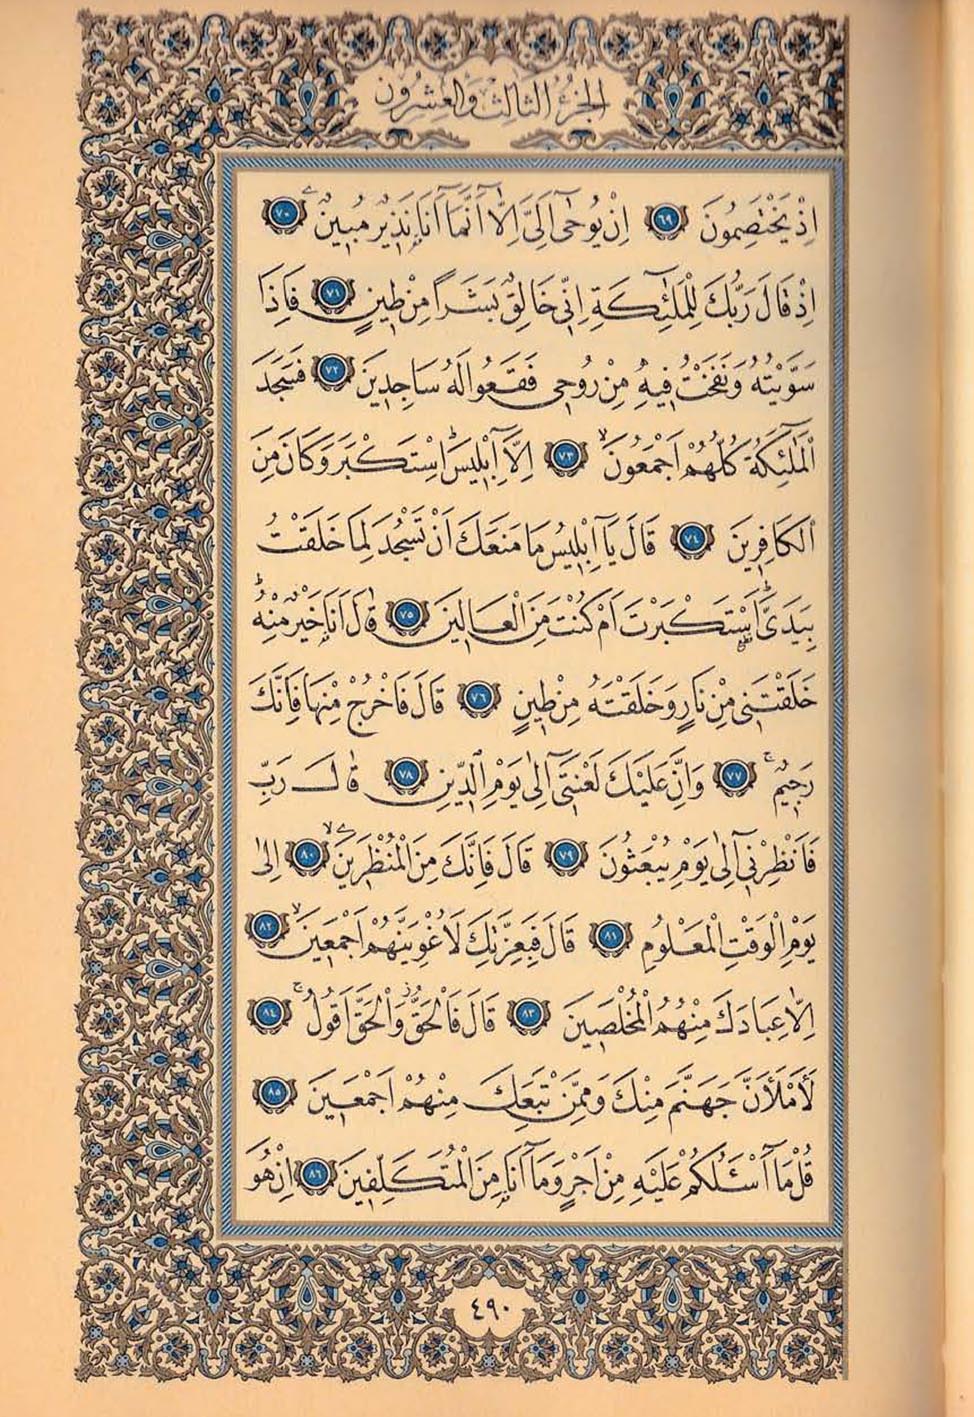 الجزء الثالث والعشرون
اِذْ يَخْتَصِمُونَ ٦٩ اِنْ يُوحٰىٓ اِلَيَّ اِلَّٓا اَنَّمَٓا اَنَا۬ نَذٖيرٌ مُبٖينٌ ٧٠
اِذْ قَالَ رَبُّكَ لِلْمَلٰٓئِكَةِ اِنّٖي خَالِقٌ بَشَرًا مِنْ طٖينٍ ٧١ فَاِذَا
سَوَّيْتُهُ وَنَفَخْتُ فٖيهِ مِنْ رُوحٖي فَقَعُوا لَهُ سَاجِدٖينَ ٧٢ فَسَجَدَ
الْمَلٰٓئِكَةُ كُلُّهُمْ اَجْمَعُونَۙ ٧٣ اِلَّٓا اِبْلٖيسَۜ اِسْتَكْبَرَ وَكَانَ مِنَ
الْكَافِرٖينَ ٧٤ قَالَ يَٓا اِبْلٖيسُ مَا مَنَعَكَ اَنْ تَسْجُدَ لِمَا خَلَقْتُ
بِيَدَيَّۜ اَسْتَكْبَرْتَ اَمْ كُنْتَ مِنَ الْعَالٖينَ ٧٥ قَالَ اَنَا۬ خَيْرٌ مِنْهُۜ
خَلَقْتَنٖي مِنْ نَارٍ وَخَلَقْتَهُ مِنْ طٖينٍ ٧٦ قَالَ فَاخْرُجْ مِنْهَا فَاِنَّكَ
رَجٖيمٌۚ ٧٧ وَاِنَّ عَلَيْكَ لَعْنَتٖٓي اِلٰى يَوْمِ الدّٖينِ ٧٨ قَالَ رَبِّ
فَاَنْظِرْنٖٓي اِلٰى يَوْمِ يُبْعَثُونَ ٧٩ قَالَ فَاِنَّكَ مِنَ الْمُنْظَرٖينَۙ ٨٠ اِلٰى
يَوْمِ الْوَقْتِ الْمَعْلُومِ ٨١ قَالَ فَبِعِزَّتِكَ لَاُغْوِيَنَّهُمْ اَجْمَعٖينَۙ ٨٢
اِلَّا عِبَادَكَ مِنْهُمُ الْمُخْلَصٖينَ ٨٣ قَالَ فَالْحَقُّۘ وَالْحَقَّ اَقُولُۚ ٨٤
لَاَمْلَـَٔنَّ جَهَنَّمَ مِنْكَ وَمِمَّنْ تَبِعَكَ مِنْهُمْ اَجْمَعٖينَ ٨٥
قُلْ مَٓا اَسْـَٔلُكُمْ عَلَيْهِ مِنْ اَجْرٍ وَمَٓا اَنَا۬ مِنَ الْمُتَكَلِّفٖينَ ٨٦ اِنْ هُوَ
٤٩٠